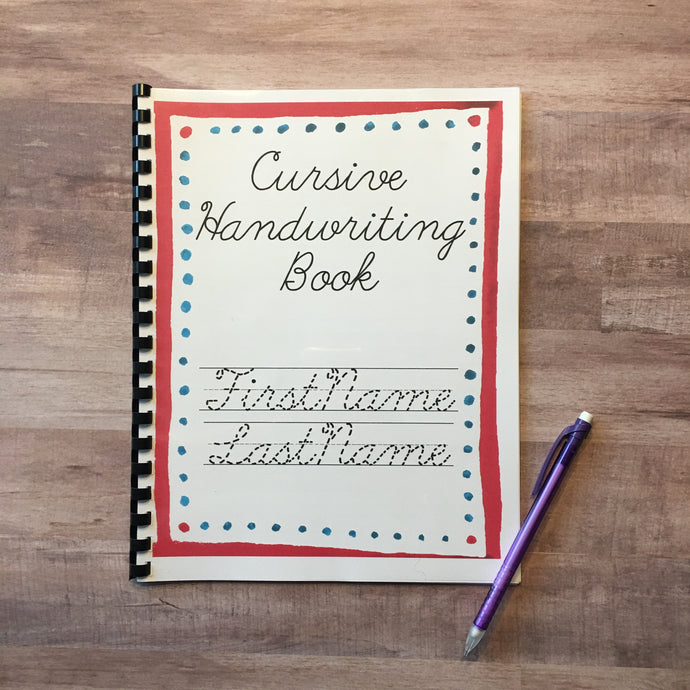 Cursive
Handwriting
Book
FirstName
LastName